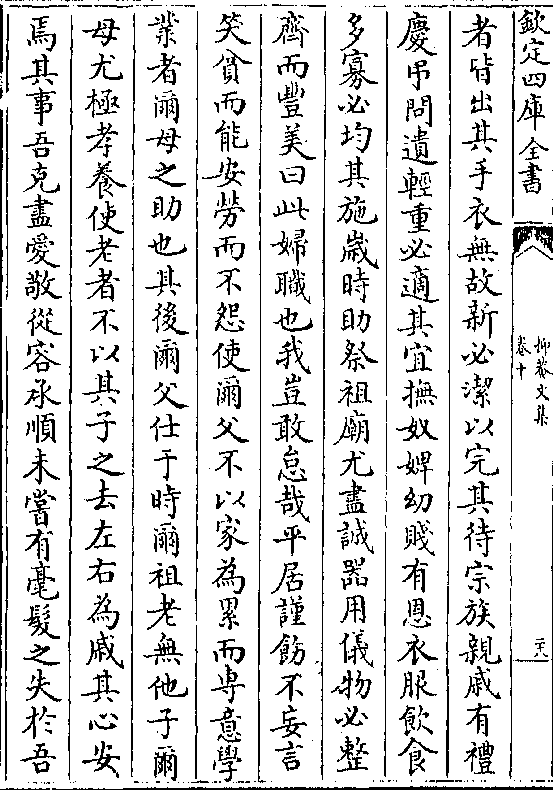 欽定四庫全書
抑菴文集
卷十
二六
者皆出其手衣無故新必潔以完其待宗族親戚有禮
慶弔問遺輕重必適其宜撫奴婢幼賤有恩衣服飲食
多寡必均其施歲時助祭祖廟尤盡誠器用儀物必整
齊而豐美曰此婦職也我豈敢怠哉平居謹飭不妄言
笑貧而能安勞而不怨使爾父不以家為累而専意學
業者爾母之助也其後爾父仕于時爾祖老無他子爾
母尤極孝養使老者不以其子之去左右為戚其心安
焉其事吾克盡愛敬從容承順未嘗有毫髮之失於吾